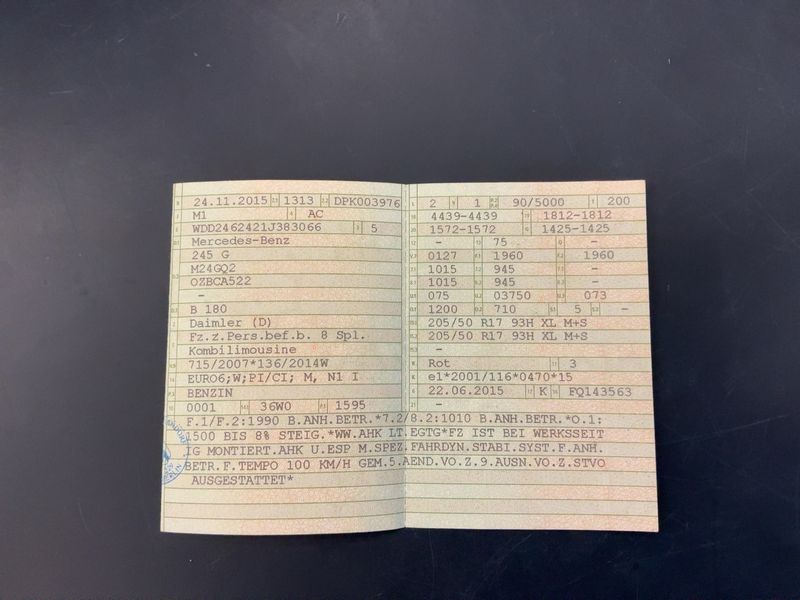 24.11.2015 1313 DPK003976
M1 AC
WDD2462421J383066 5
Mercedes-Benz
245 G
M24GQ2
OZBCA522
-
B 180
Daimler (D)
Fz.z.Pers.bef.b. 8 Spl.
Kombilimousine
715/2007*136/2014W
EURO6;W;PI/CI; M, N1 I
BENZIN
0001 36W0 1595
2 1 90/5000 200
4439-4439 1812-1812
1572-1572 1425-1425
- 75 -
0127 1960 1960
1015 945 -
1015 945 -
075 03750 073
1200 710 5 -
205/50 R17 93H XL M+S
205/50 R17 93H XL M+S
-
Rot 3
e1*2001/116*0470*15
22.06.2015 K FQ143563
-
F.1/F.2:1990 B.ANH.BETR.*7.2/8.2:1010 B.ANH.BETR.*O.1:
1500 BIS 8% STEIG.*WW.AHK LT.EGTG*FZ IST BEI WERKSSEIT
IG MONTIERT.AHK U.ESP M.SPEZ.FAHRDYN.STABI.SYST.F.ANH.
BETR.F.TEMPO 100 KM/H GEM.5.AEND.VO.Z.9.AUSN.VO.Z.STVO
AUSGESTATTET*